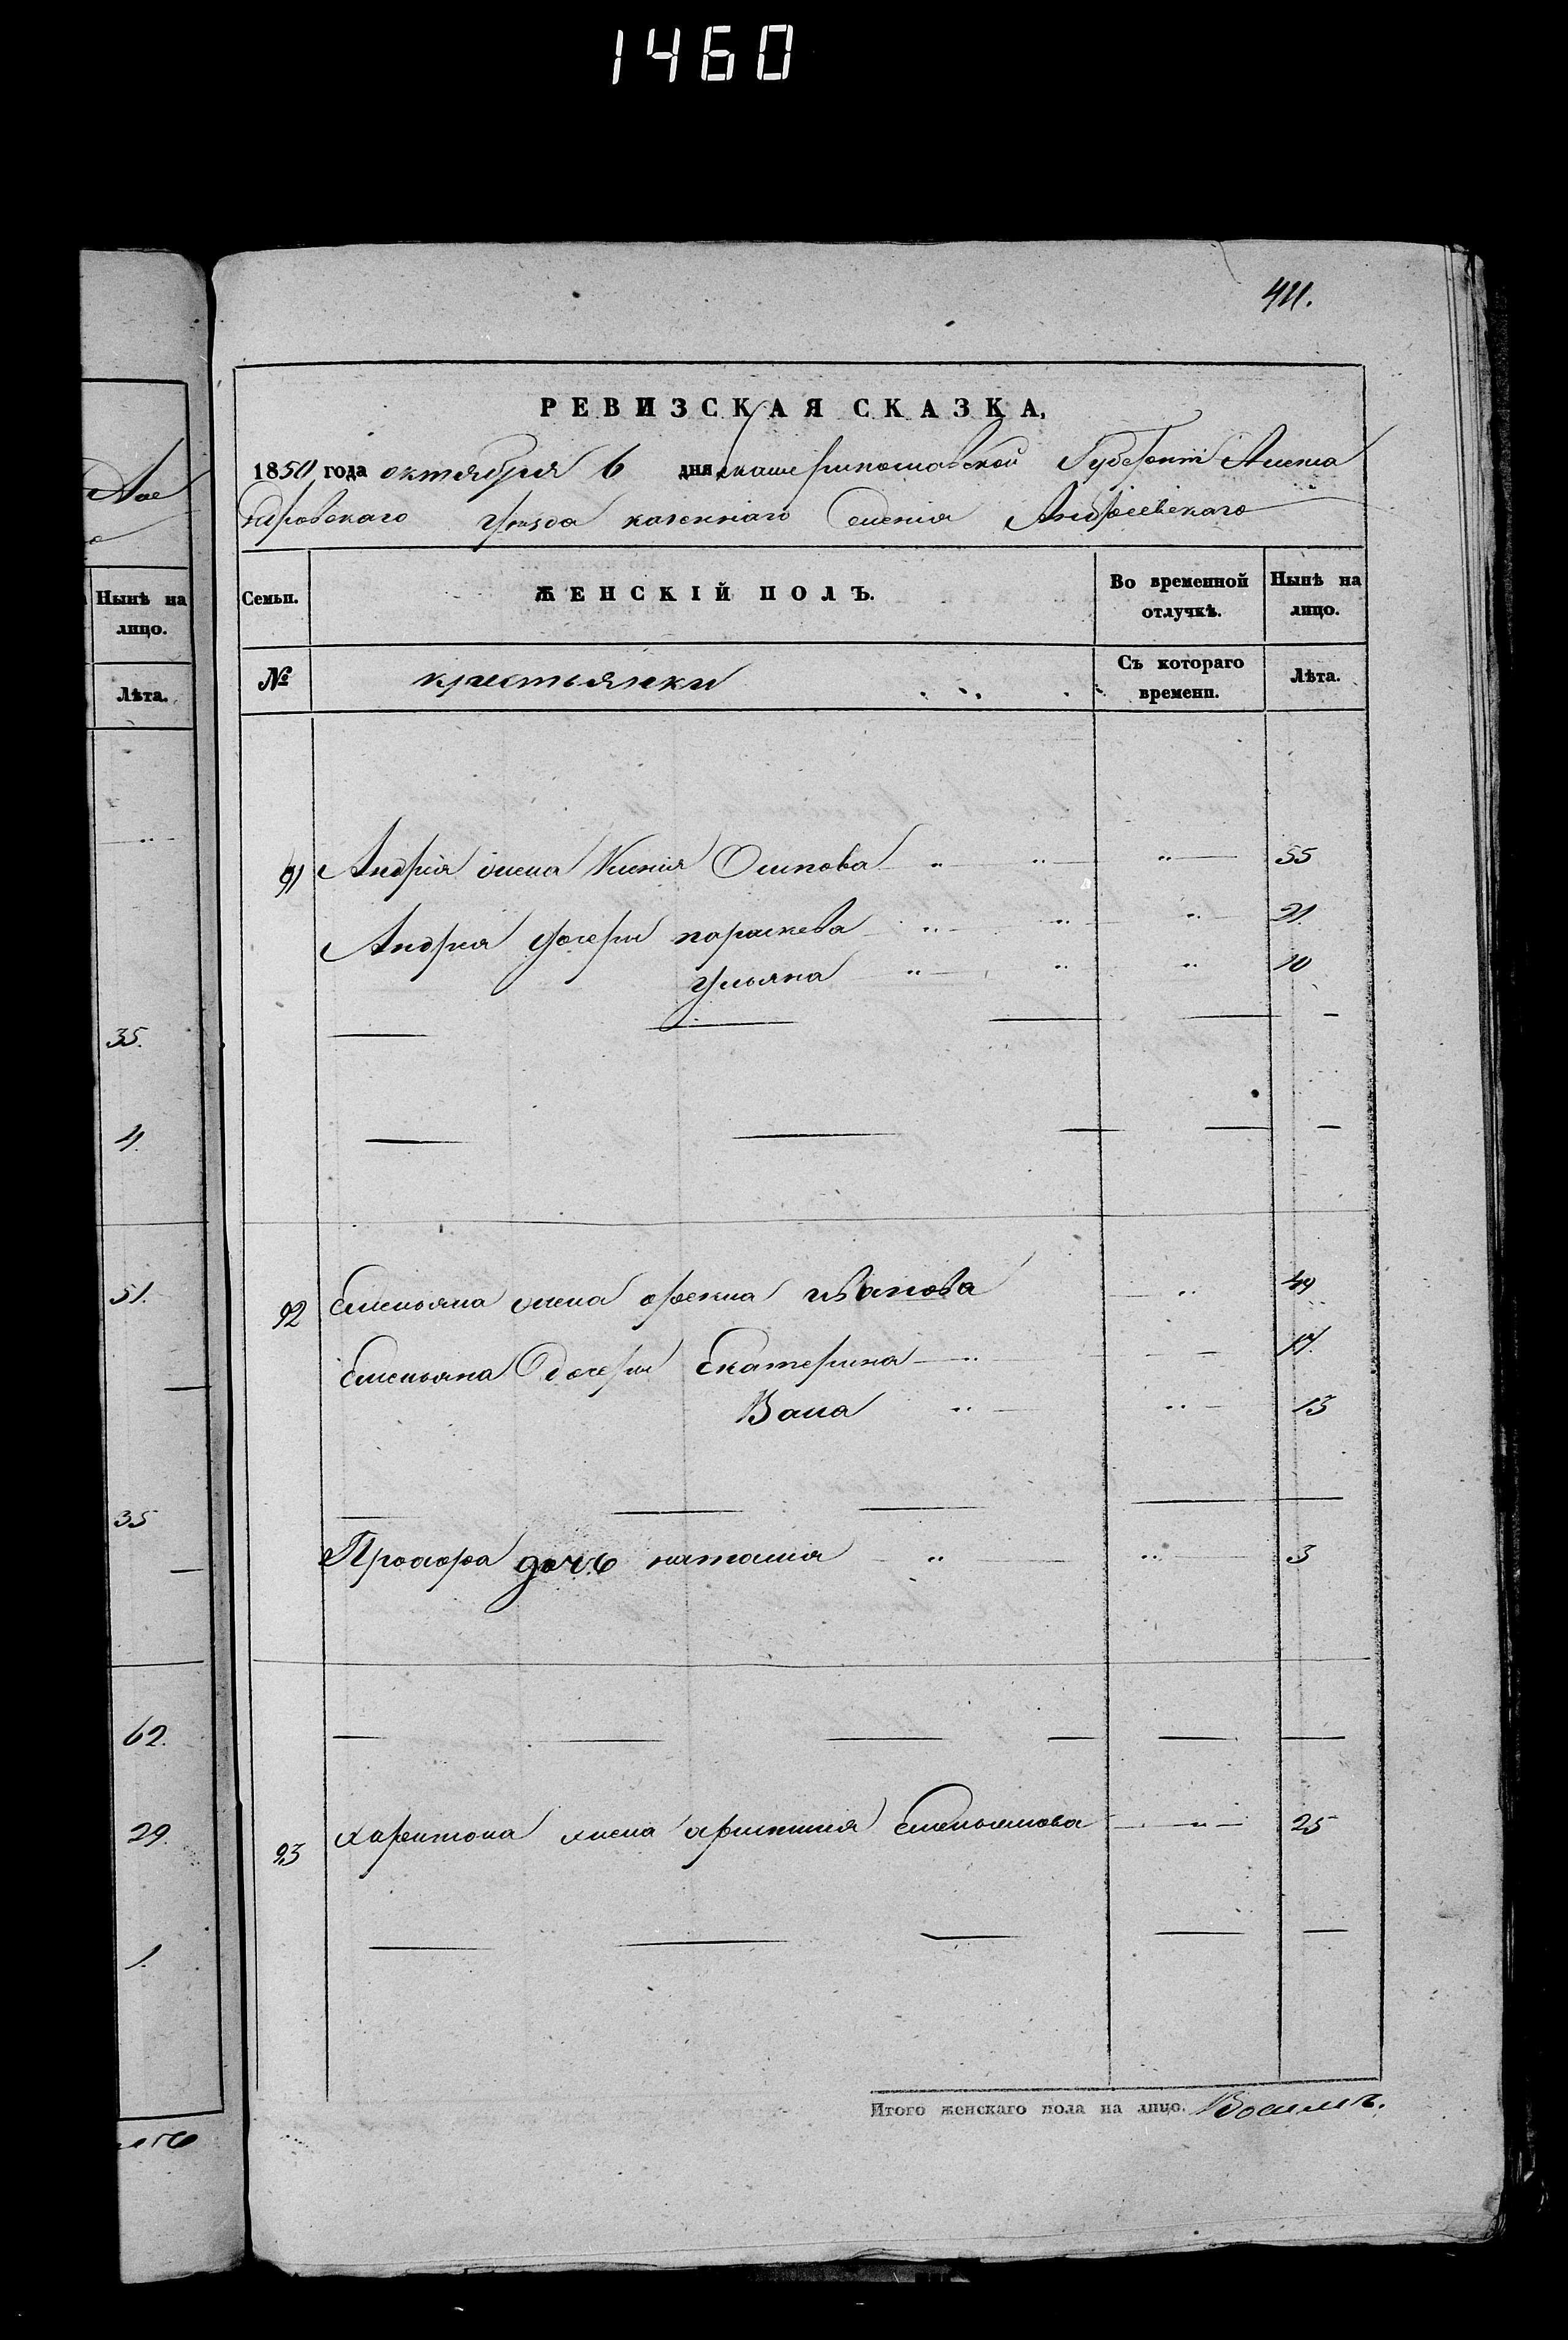 1460
411.
РЕВИЗСКАЯ СКАЗКА,
1850 года октября 6 дня Екатеринославской Губернiи Алекса
ндровского уезда казеннаго Селенiя Андреевскаго
Нынѣ на лицо.
Лѣта.
35.
4.
51.
35
62.
29.
1.
Семьи. ЖЕНСКІЙ ПОЛЪ. Во временной отлучкѣ. Нынѣ на лицо.
№ крестьянки Съ котораго времени. Лѣта.
91 Андрея жена Ксенiя Осипова 55
Андрея дочери параскева 21
Ульяна 10
92 Емельяна жена Ивanова 49
Емельяна дочери Екатерина 17.
Васа 13
Прохора дочь наталия 3
93 харитона жена Емельянова 25
Итого женскаго пола на лицо. Восемь.